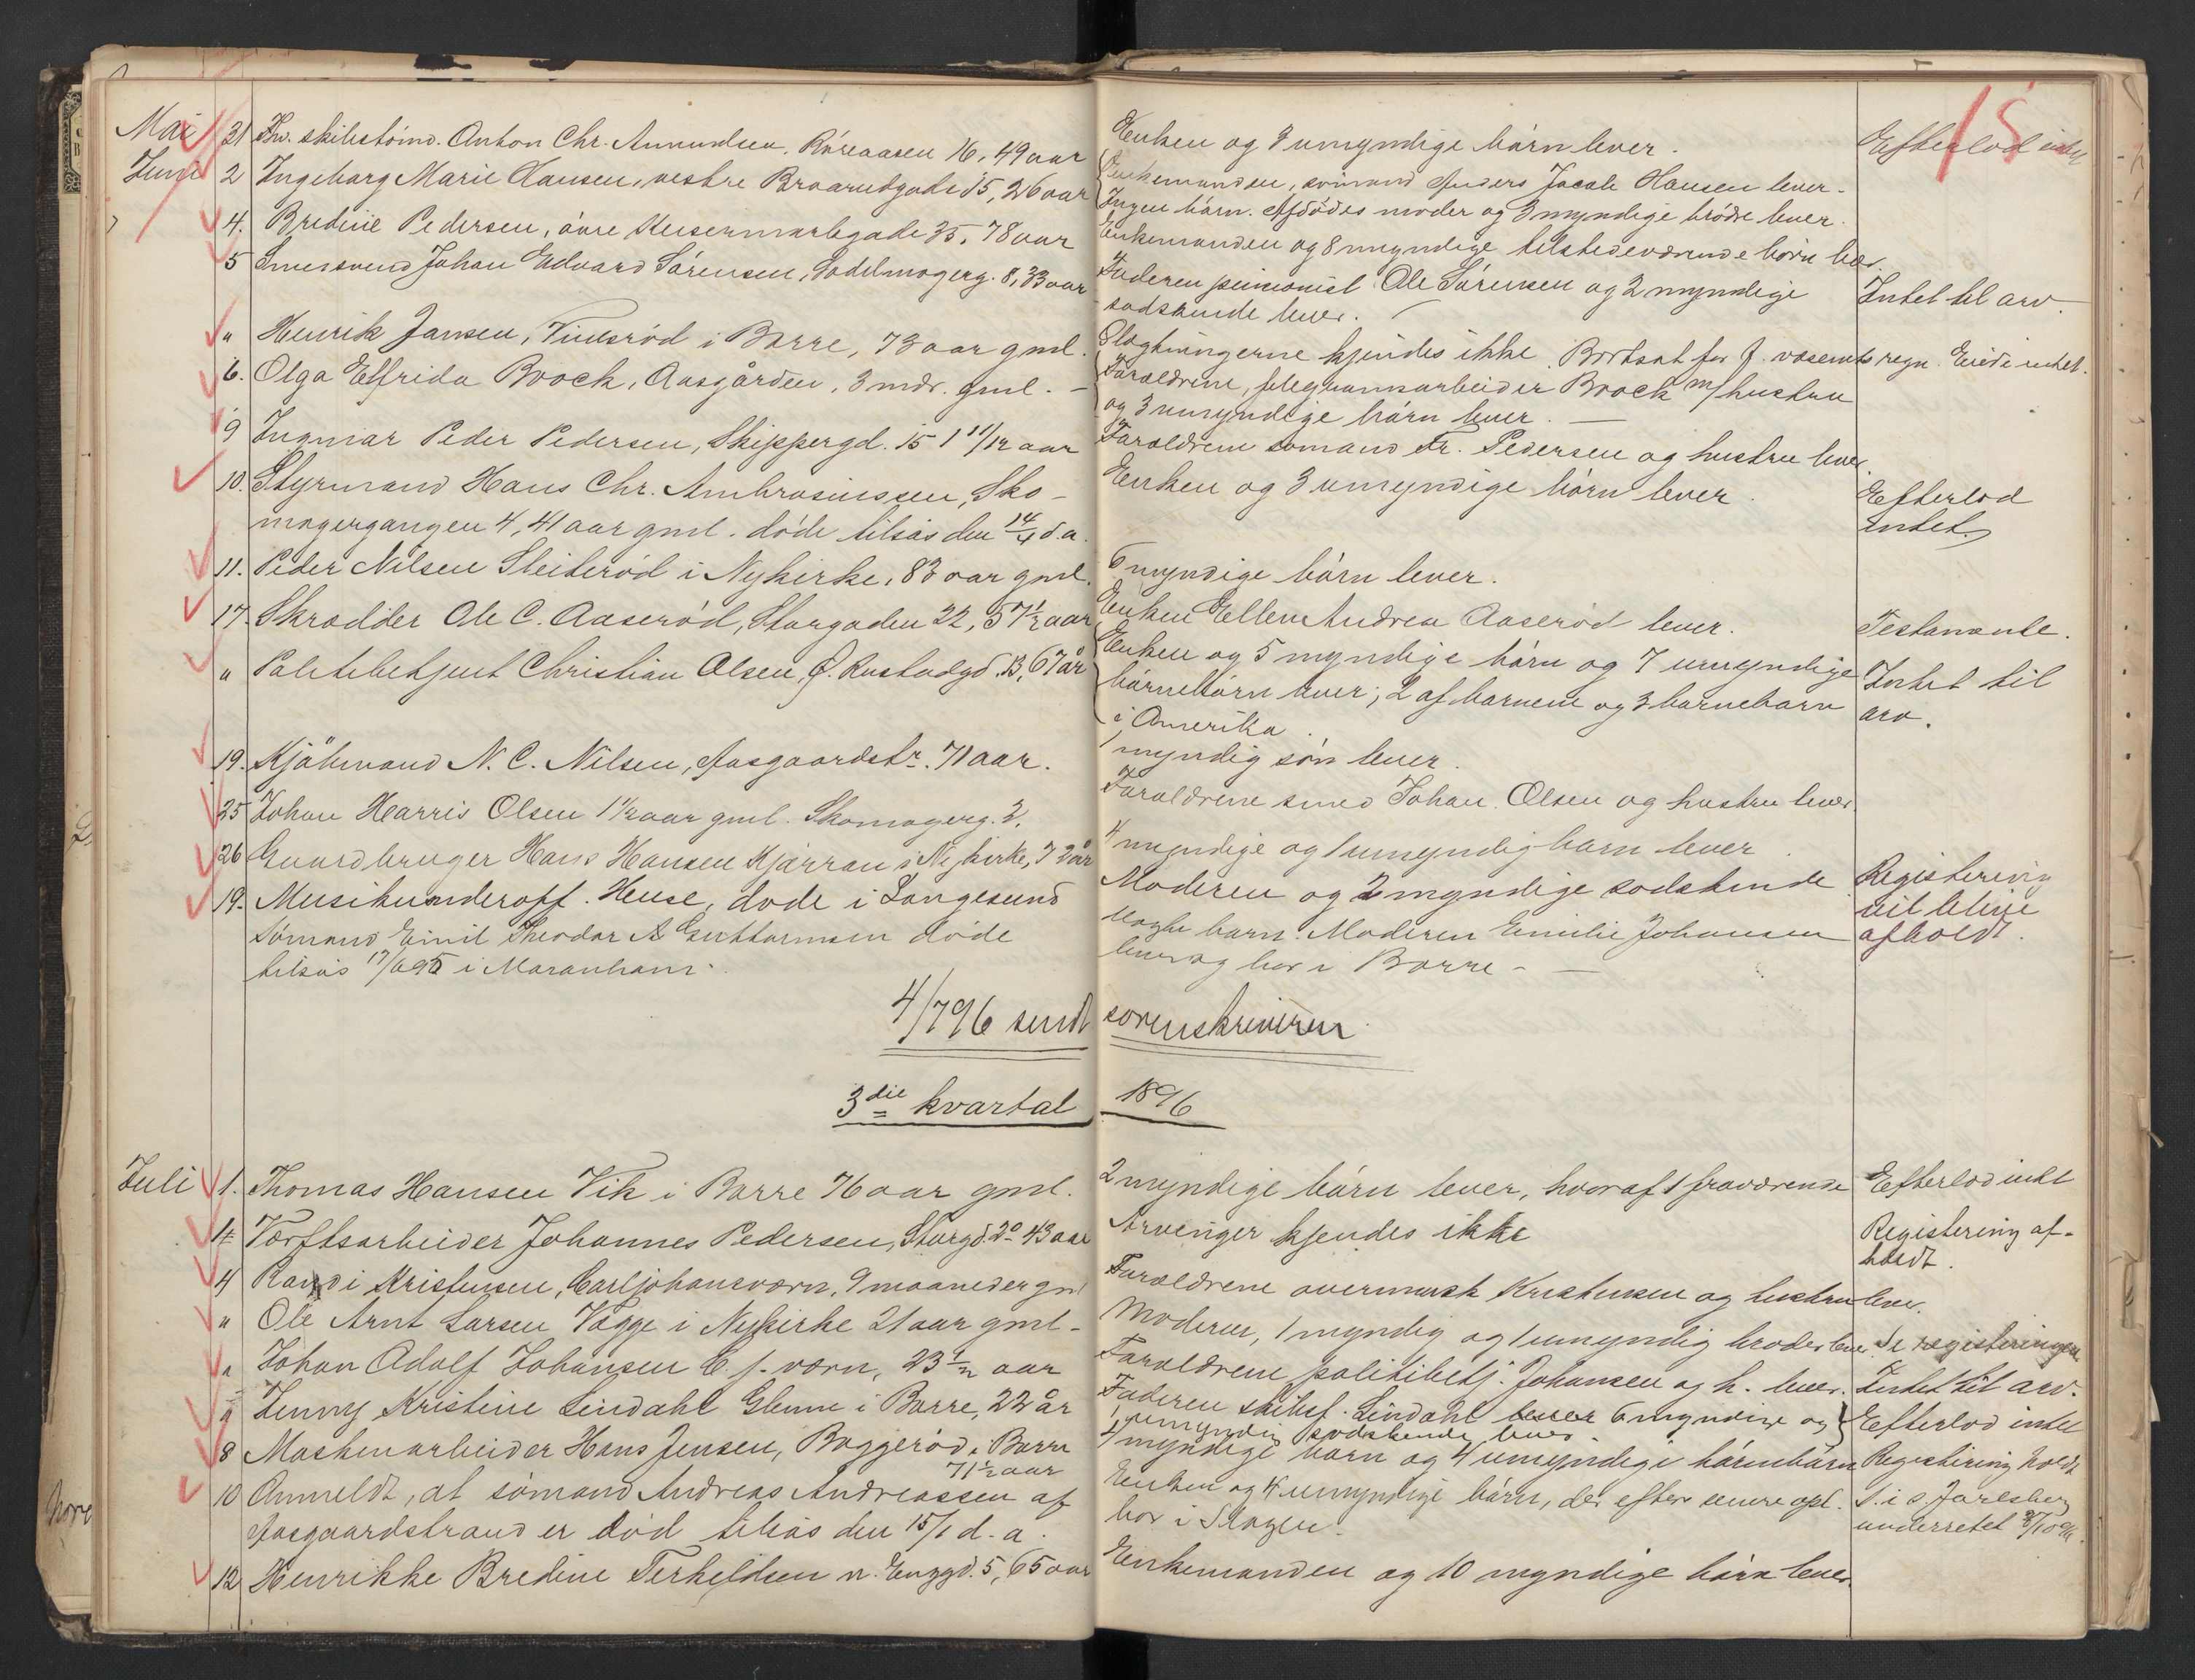 15
Mai 31 Fhv. skibstømd. Anton Chr. Amundsen, Røreaasen 16, 49 aar
Enken og 7 umyndige børn lever.
Efterlod intet
Juni 2 Ingeborg Marie Hansen, vestre Braarudgade 15, 26 aar
Enkemanden, sømand Anders Jacob Hansen lever.
Ingen børn. Afdødes moder og 3 myndige brødre lever.
4. Bredine Pedersen, øvre Keisemarkgade 35, 78 aar
Enkemanden og 8 myndige tilstedeværende børn lever.
5 Smedsvend Johan Edvard Sørensen, Sadelmagerg. 8, 33 aar
Faderen pensionist Ole Sørensen og 2 myndige
sødskende lever.
Intet til arv.
" Henrik Jansen, Vinesrød i Borre, 73 aar gml.
Slægtningerne kjendes ikke. Bortsat for f. væsenets regn. Eiede intet.
6. Olga Elfrida Brock, Aasgården, 3 mdr. gml. —
Forældrene, telegrafarbeider Brock m/ hustru
og 3 umyndige børn lever. —
9 Ingmar Peder Pedersen, Skippergd. 15 1 11/12 aar
Forældrene sømand Fr. Pedersen og hustru lever.
10. Styrmand Hans Chr. Ambrosiussen, Sko-
magergangen 4, 41 aar gml. døde tilsøs den 14/4 d.a.
Enken og 3 umyndige børn lever.
Efterlod
intet.
11. Peder Nilsen Sleiterød i Nykirke, 83 aar gml.
6 myndige børn lever.
17. Skrædder Ole C. Aaserød, Storgaden 22, 57 1/2 aar
Enken Ellen Andrea Aaserød lever.
Testamente.
" Politibetjent Christian Olsen, J. Rustadgd. 13, 67 år
Enken og 5 myndige børn og 7 umyndige
børnebørn lever; 2 af barnene og 3 barnebarn
i Amerika.
Intet til
arv.
19. Kjøbmand N. C. Nilsen, Aasgaardstr. 71 aar.
1 myndig søn lever.
25 Johan Harris Olsen 1 1/2 aar gml. Skomagerg. 2.
Forældrene smed Johan Olsen og hustru lever.
26 Gaardbruger Hans Hansen Kjærran i Nykirke, 72 år
4 myndige og 1 umyndig barn lever.
19. Musikunderoff. Heuse, døde i Langesund
Moderen og 2 myndige sødskende
Registrering
vil blive
afholdt.
Sømand Emil Theodor A Guttormsen døde
tilsøs 17/6 95 i Maranham.
Uægte barn. Moderen Emilie Johansen
lever og bor i Borre. —
4/7 96 sendt sorenskriveren.
3die kvartal 1896
Juli 1. Thomas Hansen Vik i Borre 76 aar gml.
2 myndige børn lever, hvoraf 1 fraværende
Efterlod intet
4 Værftsarbeider Johannes Pedersen, Storgd. 20 43 aar
Arvinger kjendes ikke
Registrering af-
holdt.
4 Randi Kristensen, Carljohansværn, 9 maaneder gml
Forældrene overmusk Kristensen og hustru lever.
" Ole Arnt Larsen Vagge i Nykirke 21 aar gml.
Moderen, 1 myndig og 1 umyndig broder lever.
Se registeringen
" Johan Adolf Johansen C. J. værn, 23 1/2 aar
Forældrene politibetj. Johansen og h. lever.
Intet til arv.
9 Jenny Kristine Lindahl Glenne i Borre, 22 år
Faderen skibsf. Lindahl lever 6 myndige og
1 umyndig sødskende lever.
Efterlod intet
8 Maskinarbeider Hans Jensen, Baggerød i Borre
71 1/2 aar
4 myndige barn og 4 umyndige børnebørn
Registrering holdt
10 Anmeldt, at sømand Andreas Andreassen af
Aasgaardstrand er død tilsøs den 15/1 d. a.
Enken og 4 umyndige børn, der efter senere opl.
bor i Slagen.
S. i s. Jarlsberg
underrettet 8/10 96.
12 Henrikke Bredine Terkeldsen n. Enggd. 5, 65 aar
Enkemanden og 10 myndige børn lever.